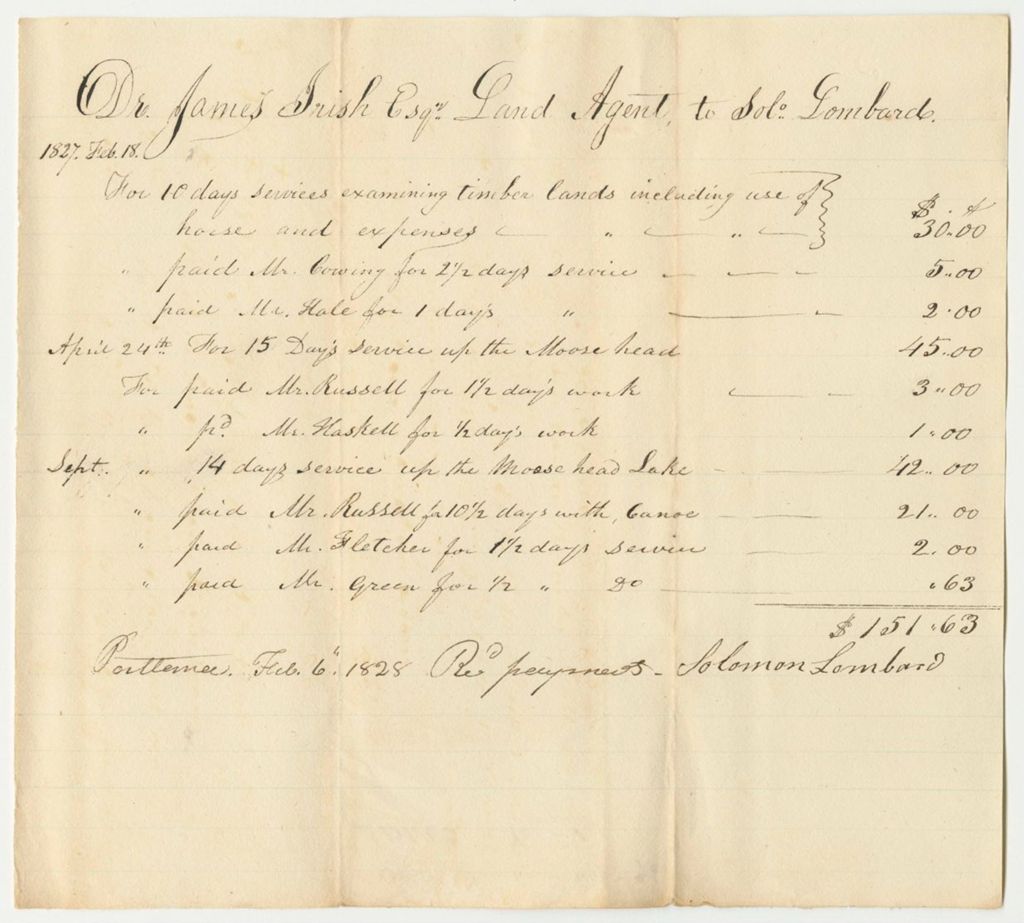 Dr. James Irish Esqr. Land Agent, to Solo. Lombard.
1827. Feb. 18.
For 10 days services examining timber lands including use of
$ . ct
horse and expenses " " 30.00
" paid Mr. Cowing for 2 1/2 days service 5.00
" paid Mr. Hale for 1 day's " 2.00
April 24th. For 15 Day's service up the Moose head 45.00
For paid Mr. Russell for 1 1/2 day's work 3.00
" pd. Mr. Haskell for 1/2 day's work 1.00
Sept. " 14 days service up the Moose head Lake 42.00
" paid Mr. Russell for 10 1/2 days with, Canoe 21.00
" paid Mr. Fletcher for 1 1/2 day's service 2.00
" paid Mr. Green for 1/2 " Do .63
$ 151.63
Feb. 6" 1828 Recd payment - Solomon Lombard